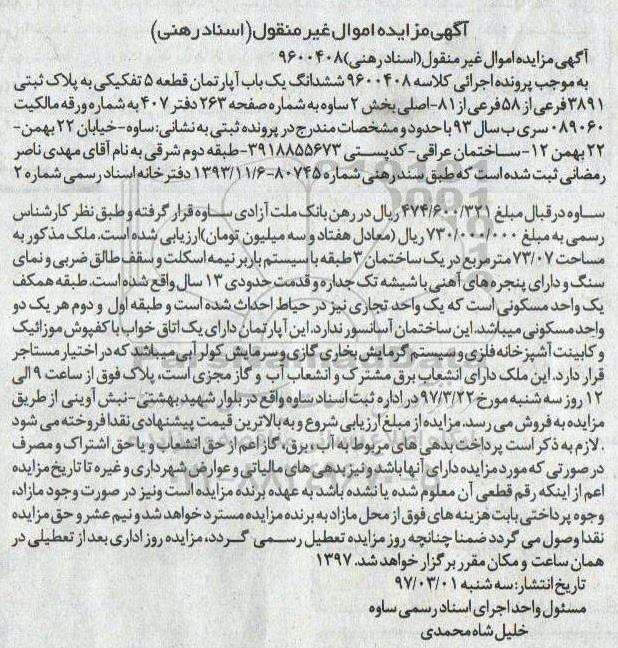 آگهی مزایده اموال غیر منقول (اسناد رهنی)
آگهی مزایده اموال غیر منقول (اسناد رهنی) ۹۶۰۰۴۰۸
به موجب پرونده اجرائی کلاسه ۹۶۰۰۴۰۸ ششدانگ یک باب آپارتمان قطعه ۵ تفکیکی به پلاک ثبتی
۳۸۹۱ فرعی از ۵۸ فرعی از ۸۱-اصلی بخش ۲ ساوه به شماره صفحه ۲۶۳ دفتر ۴۰۷ به شماره ورقه مالکیت
۰۸۹۰۶۰ سری ب سال ۹۳ با حدود و مشخصات مندرج در پرونده ثبتی به نشانی: ساوه-خیابان ۲۲ بهمن-
۲۲ بهمن ۱۲-ساختمان عراقی-کدپستی ۳۹۱۸۸۵۵۶۷۳-طبقه دوم شرقی به نام آقای مهدی ناصر
رمضانی ثبت شده است که طبق سند رهنی شماره ۸۰۷۴۵-۱۳۹۳/۱۱/۶ دفترخانه اسناد رسمی شماره ۲
ساوه در قبال مبلغ ۴۷۴/۶۰۰/۳۲۱ ریال در رهن بانک ملت آزادی ساوه قرار گرفته و طبق نظر کارشناس
رسمی به مبلغ ۷۳۰/۰۰۰/۰۰۰ ریال (معادل هفتاد و سه میلیون تومان) ارزیابی شده است. ملک مذکور به
مساحت ۷۳/۰۷ مترمربع در یک ساختمان ۳ طبقه با سیستم باربر نیمه اسکلت و سقف طاق ضربی و نمای
سنگ و دارای پنجره های آهنی با شیشه تک جداره و قدمت حدودی ۱۳ سال واقع شده است. طبقه همکف
یک واحد مسکونی است که یک واحد تجاری نیز در حیاط احداث شده است و طبقه اول و دوم هر یک دو
واحد مسکونی میباشد. این ساختمان آسانسور ندارد. این آپارتمان دارای یک اتاق خواب با کفپوش موزائیک
و کابینت آشپزخانه فلزی و سیستم گرمایش بخاری گازی و سرمایش کولر آبی میباشد که در اختیار مستاجر
قرار دارد. این ملک دارای انشعاب برق مشترک و انشعاب آب و گاز مجزی است، پلاک فوق از ساعت ۹ الی
۱۲ روز سه شنبه مورخ ۹۷/۳/۲۲ در اداره ثبت اسناد ساوه واقع در بلوار شهید بهشتی-نبش آوینی از طریق
مزایده به فروش می رسد. مزایده از مبلغ ارزیابی شروع و به بالاترین قیمت پیشنهادی نقدا فروخته می شود
. لازم به ذکر است پرداخت بدهی های مربوط به آب، برق، گاز اعم از حق انشعاب و یا حق اشتراک و مصرف
در صورتی که مورد مزایده دارای آنها باشد و نیز بدهی های مالیاتی و عوارض شهرداری و غیره تا تاریخ مزایده
اعم از اینکه رقم قطعی آن معلوم شده یا نشده باشد به عهده برنده مزایده است و نیز در صورت وجود مازاد،
وجوه پرداختی بابت هزینه های فوق از محل مازاد به برنده مزایده مسترد خواهد شد و نیم عشر و حق مزایده
نقدا وصول می گردد ضمنا چنانچه روز مزایده تعطیل رسمی گردد، مزایده روز اداری بعد از تعطیلی در
همان ساعت و مکان مقرر برگزار خواهد شد. ۱۳۹۷
تاریخ انتشار: سه شنبه ۹۷/۰۳/۰۱
مسئول واحد اجرای اسناد رسمی ساوه
خلیل شاه محمدی